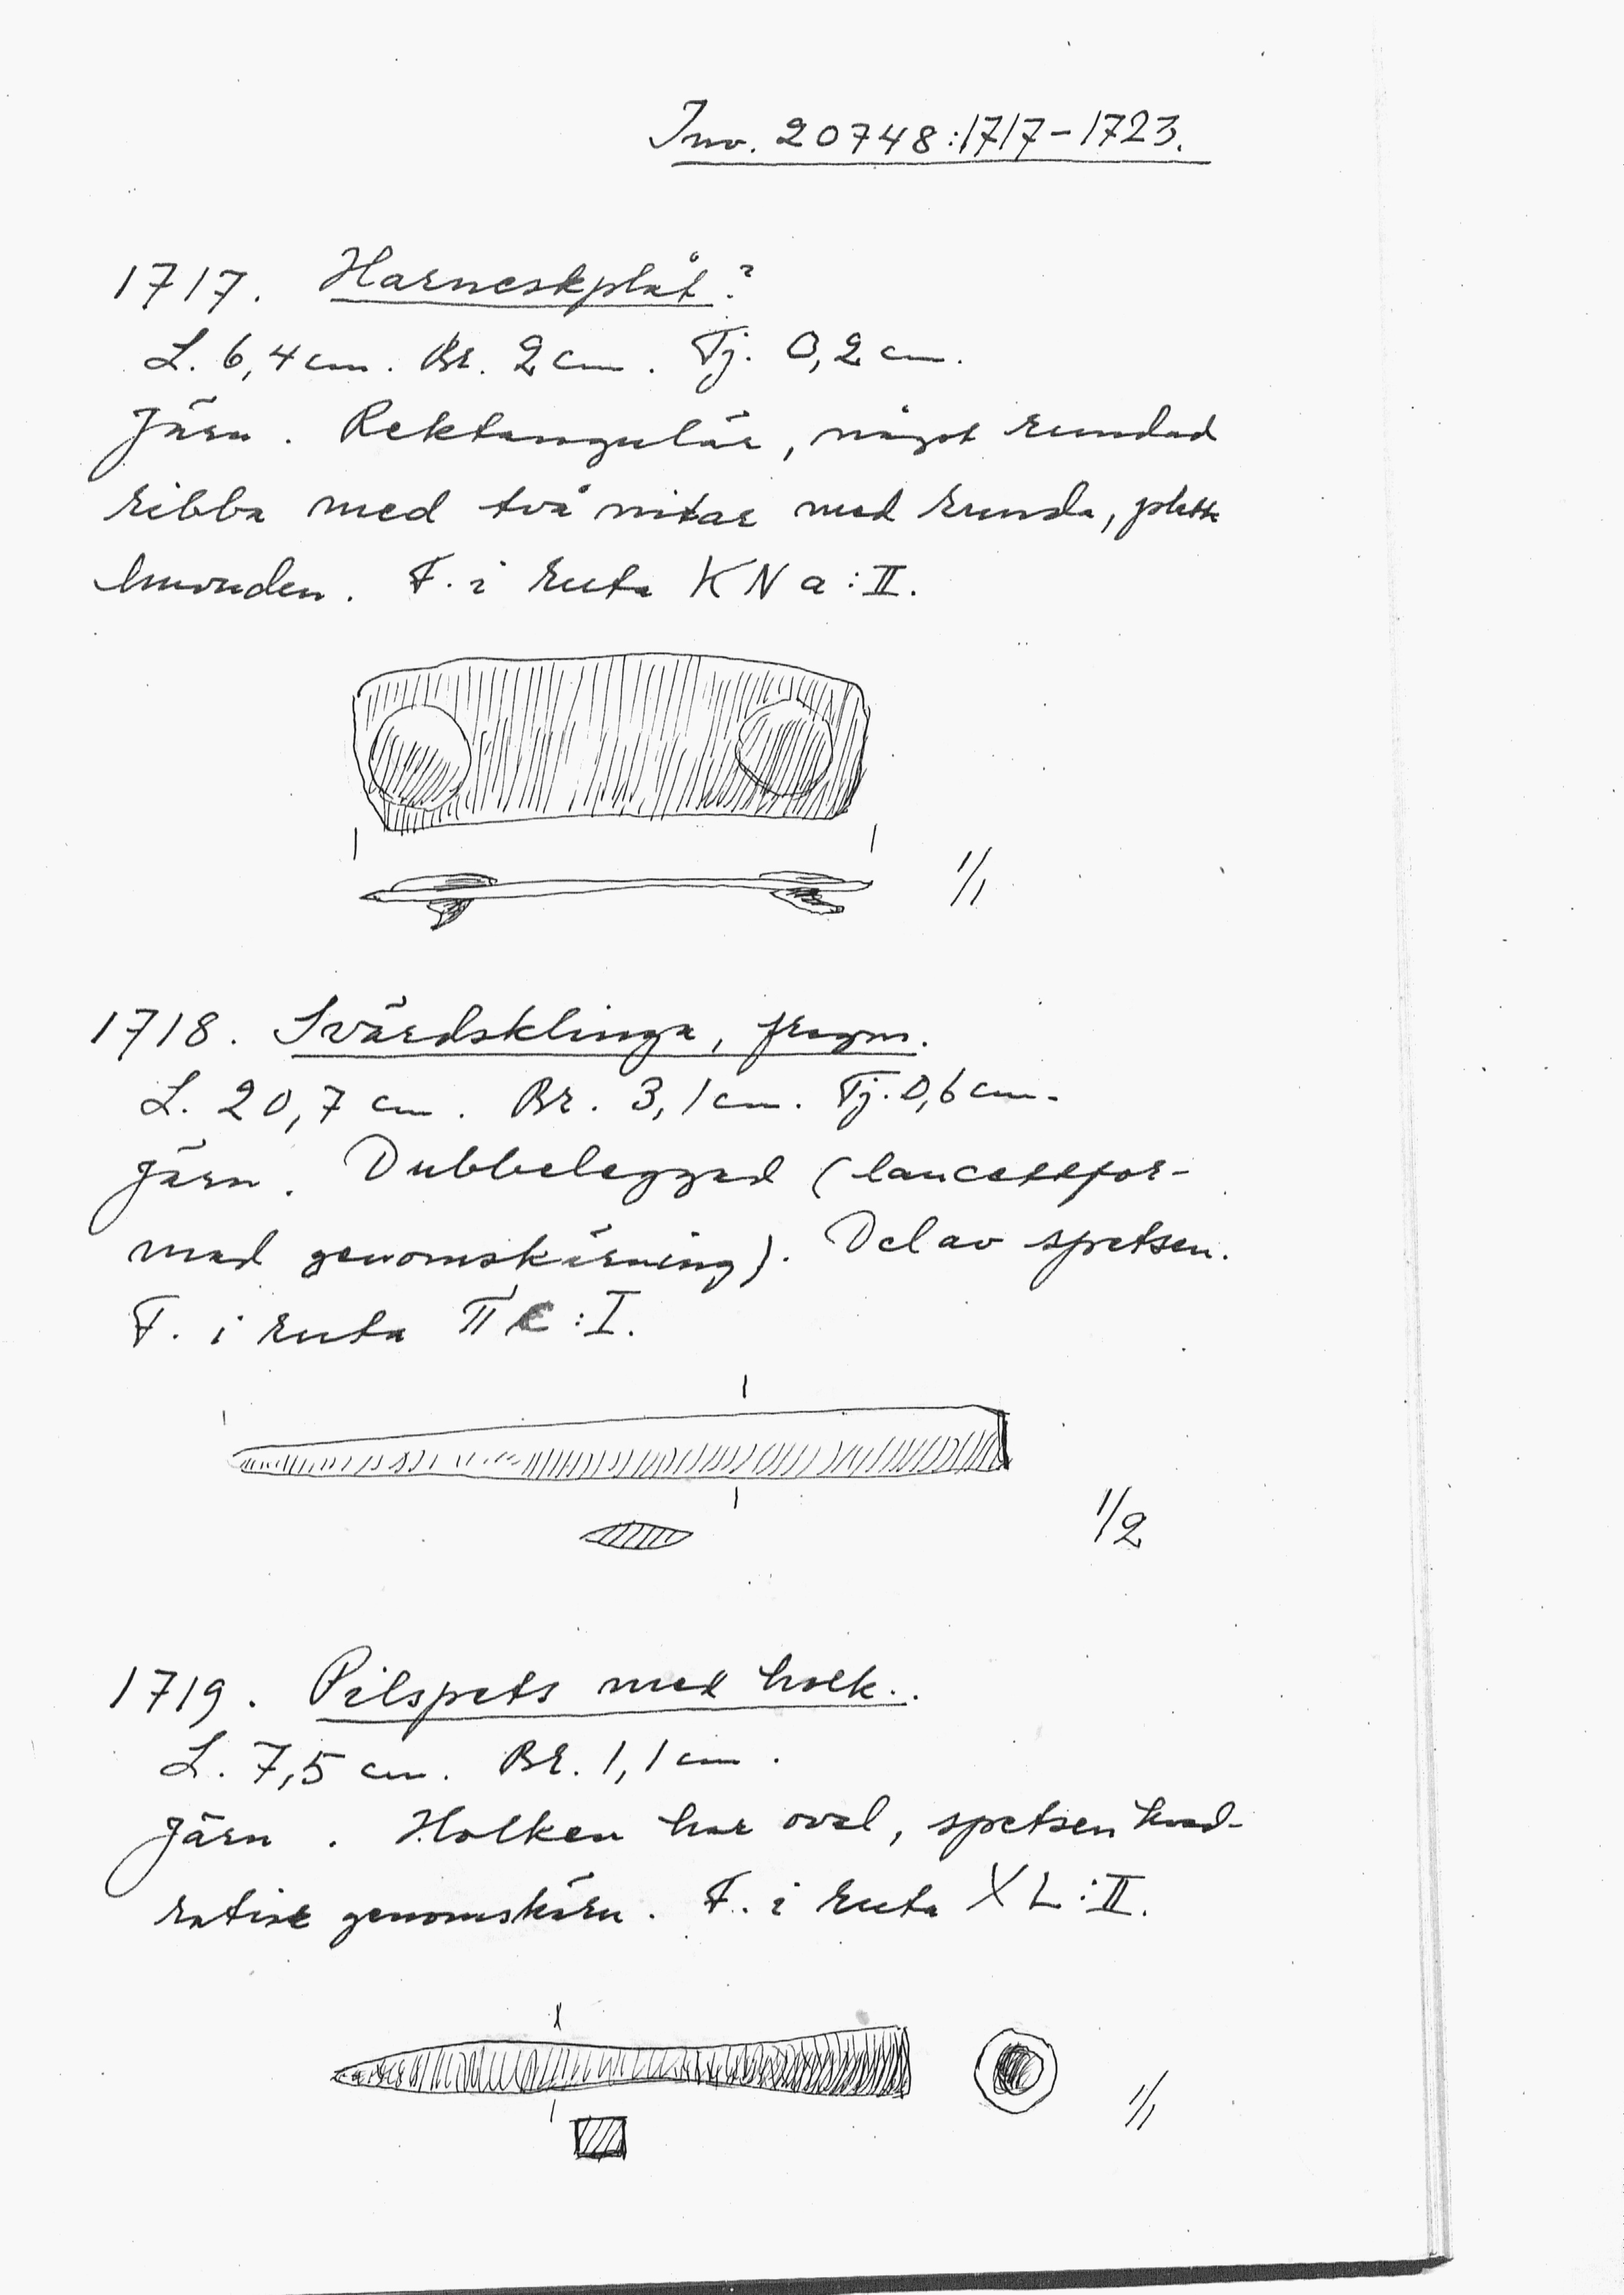 Inv. 20748:1717-1723.
1717. Harneskplåt?
L. 6,4 cm. Br. 2 cm. Tj. 0,2 cm.
Järn. Rektangulär, något rundad
ribba med två nitar med runda, platta
huvuden. F. i ruta KNa:II.
1/1
1718. Svärdsklinga, fragm.
L. 20,7 cm. Br. 3,1 cm. Tj. 0,6 cm.
Järn. Dubbeleggad (lancettfor-
mad genomskärning). Del av spetsen.
F. i ruta :I.
1/2
1719. Pilspets med holk.
L. 7,5 cm. Br. 1,1 cm.
Järn. Holken har oval, spetsen kvad-
ratisk genomskärn. F. i ruta XL:II.
1/1